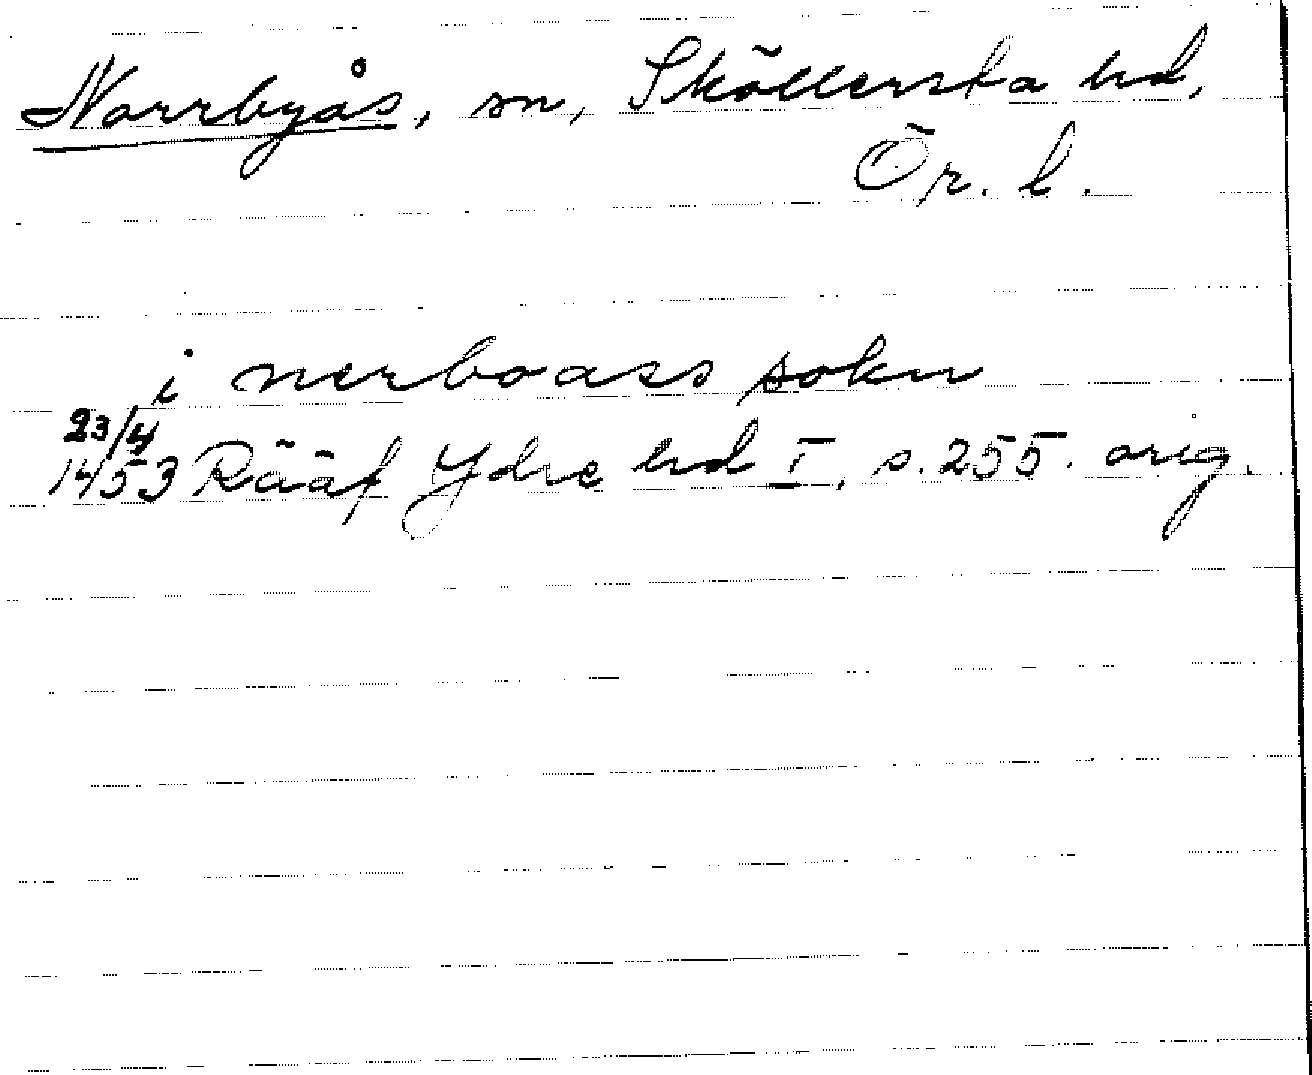 Norrbyås, sn, Sköllersta hd,
Ör. l.
i nerboass sokn
23/4
1453 Rääf Ydre hd I, s. 255. orig.